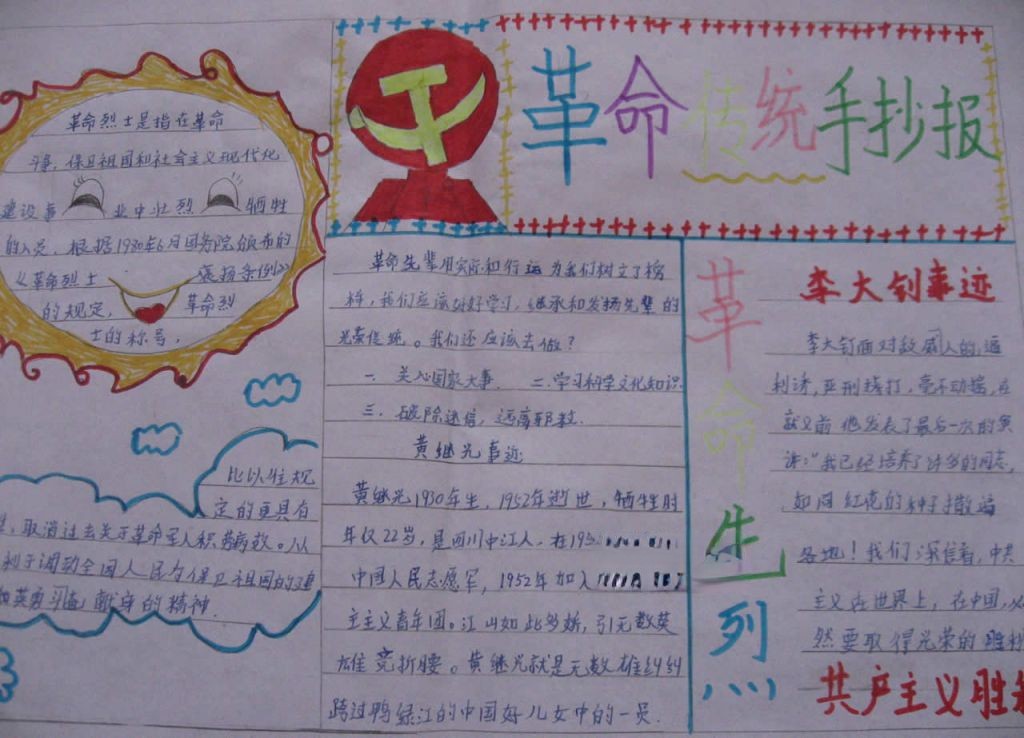 革命传统手抄报
革命烈士是指在革命
斗争,保卫祖国和社会主义现代化
建设事业中壮烈牺牲
的人员,根据1980年6月国务院颁布的
《革命烈士褒扬条例》
的规定,革命烈
士的称号,
比以往规
定的更具有
取消过去关于革命军人积劳病故。从
利于调动全国人民为保卫祖国的建
英勇斗 献身的精神.
革命先辈用实际和行运为我们树立了榜
样,我们应该好好学习,继承和发扬先辈的
光荣传统。我们还应该去做?
一、关心国家大事. 二.学习科学文化知识
三.破除迷信,远离邪教.
黄继光事迹
黄继光1930年生,1952年逝世,牺牲时
年仅22岁,是四川中江人.在195
中国人民志愿军,1952年加入
主主义青年团。江山如此多娇,引无数英
雄竞折腰。黄继光就是无数雄纠纠
跨过鸭绿江的中国好儿女中的一员.
革命先烈
李大钊事迹
李大钊面对敌 人的逼
利诱,严刑拷打,毫不动摇,在
就义前他发表了最后一次的演
讲:"我已经培养了许多的同志,
如同红花的种子撒遍
各地!我们深信着,中共
主义在世界上,在中国,必
然要取得光荣的胜利
共产主义胜利